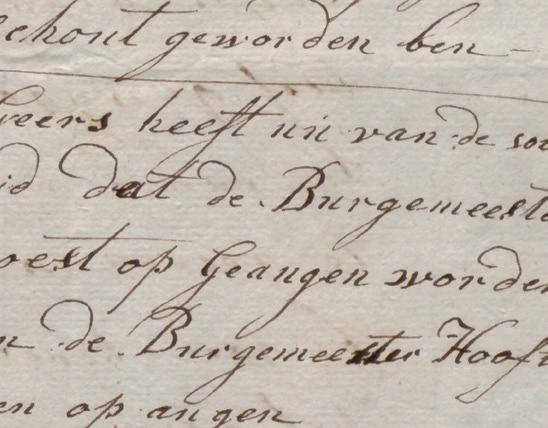 echout geworden ben -
Geers heeft nü van de soe
id dat de Burgemeeste
oest op Geangen worden
n de Burgemeester Hooft
en op angen